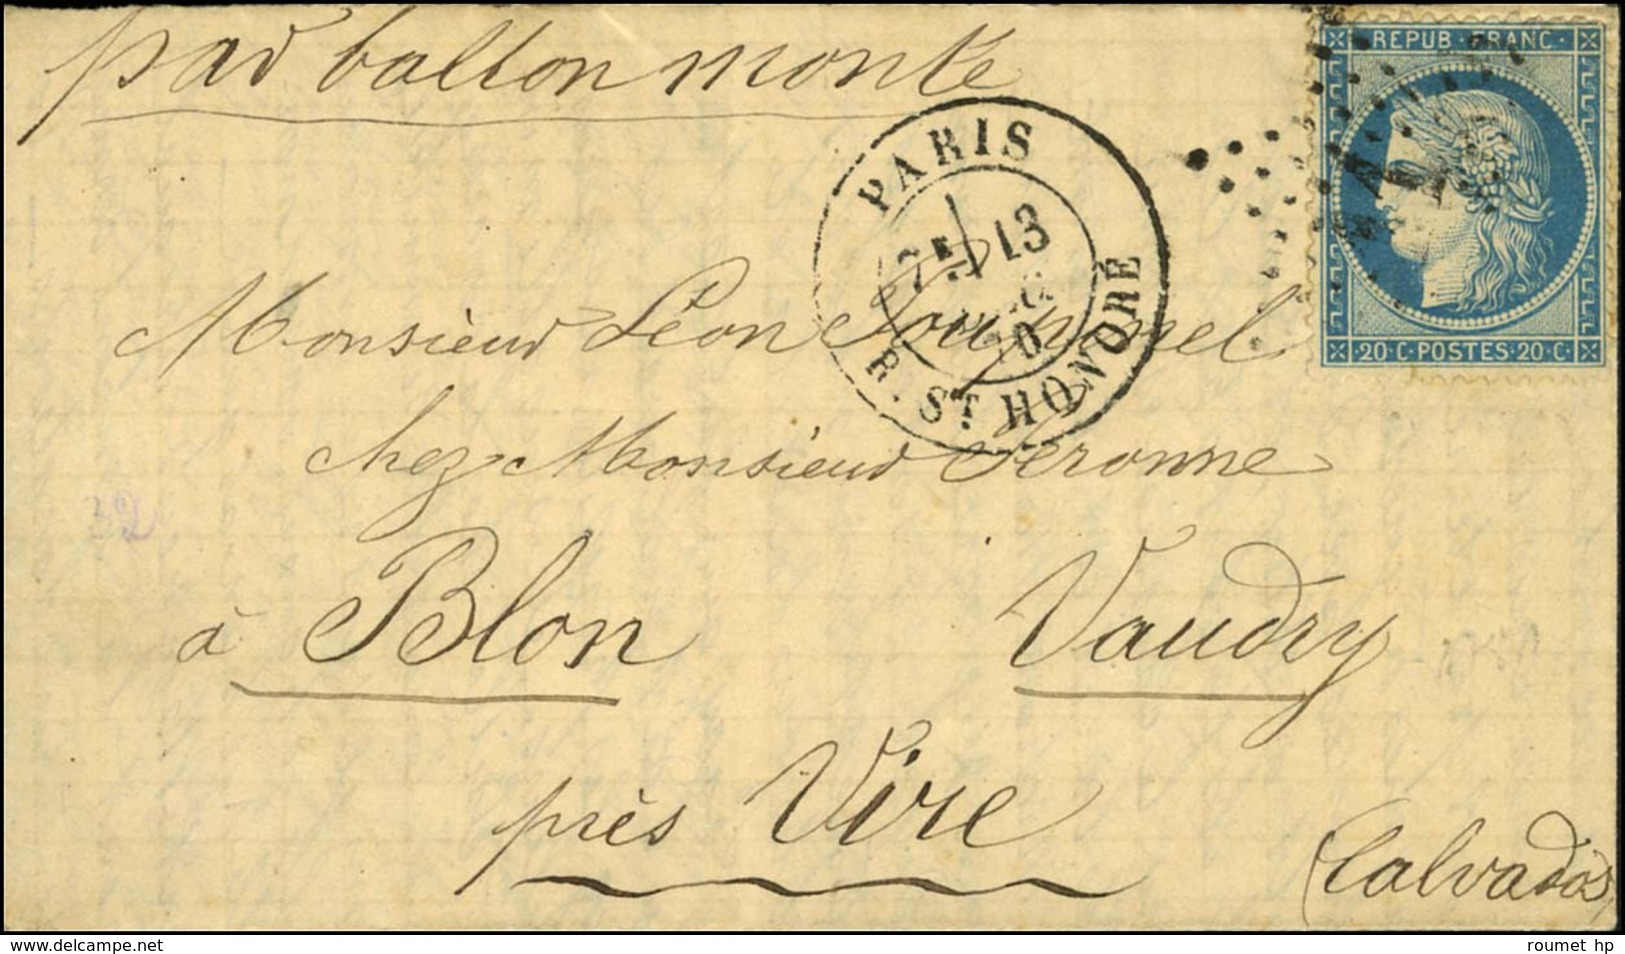 par ballon monté
REPUB. FRANC.
PARIS
7E 13
R. ST HONORÉ
20 · C · POSTES · 20 · C
Monsieur Léon
chez Monsieur Peronne
à Blon Vaudry
près Vire
(Calvados)
delcampe.net
roumet hp